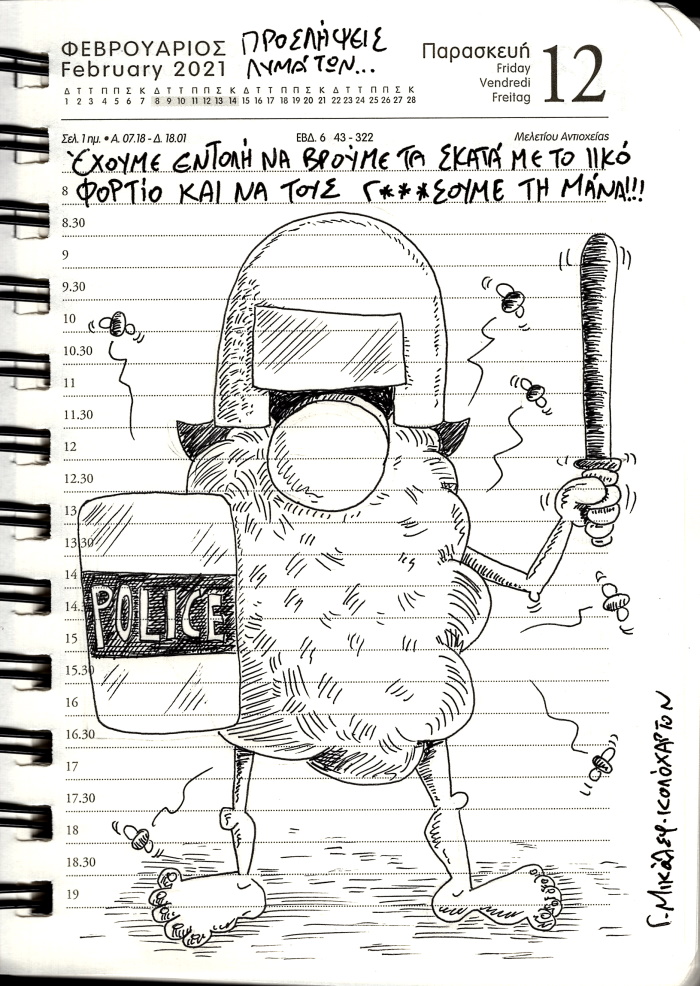 ΦΕΒΡΟΥΑΡΙΟΣ
February 2021
ΠΡΟΣΛΗΨΕΙΣ
ΛΥΜΑΤΩΝ...
Παρασκευή
Friday
Vendredi
Freitag
12
Δ Τ Τ Π Π Σ Κ Δ Τ Τ Π Π Σ Κ Δ Τ Τ Π Π Σ Κ Δ Τ Τ Π Π Σ Κ
1 2 3 4 5 6 7 8 9 10 11 12 13 14 15 16 17 18 19 20 21 22 23 24 25 26 27 28
Σελ. 1 ημ. • Α. 07.18 - Δ. 18.01
ΕΒΔ. 6 43 - 322
Μελετίου Αντιοχείας
ΈΧΟΥΜΕ ΕΝΤΟΛΗ ΝΑ ΒΡΟΥΜΕ ΤΑ ΣΚΑΤΑ ΜΕ ΤΟ
8 ΦΟΡΤΙΟ ΚΑΙ ΝΑ ΤΟΥΣ Γ***ΣΟΥΜΕ ΤΗ ΜΑΝΑ!!!
8.30
9
9.30
10
10.30
11
11.30
12
12.30
13
13.30
14
14.
POLICE
15
15.30
16
16.30
17
17.30
18
18.30
19
Γ. Μικάλεφ-κωλόχαρτον